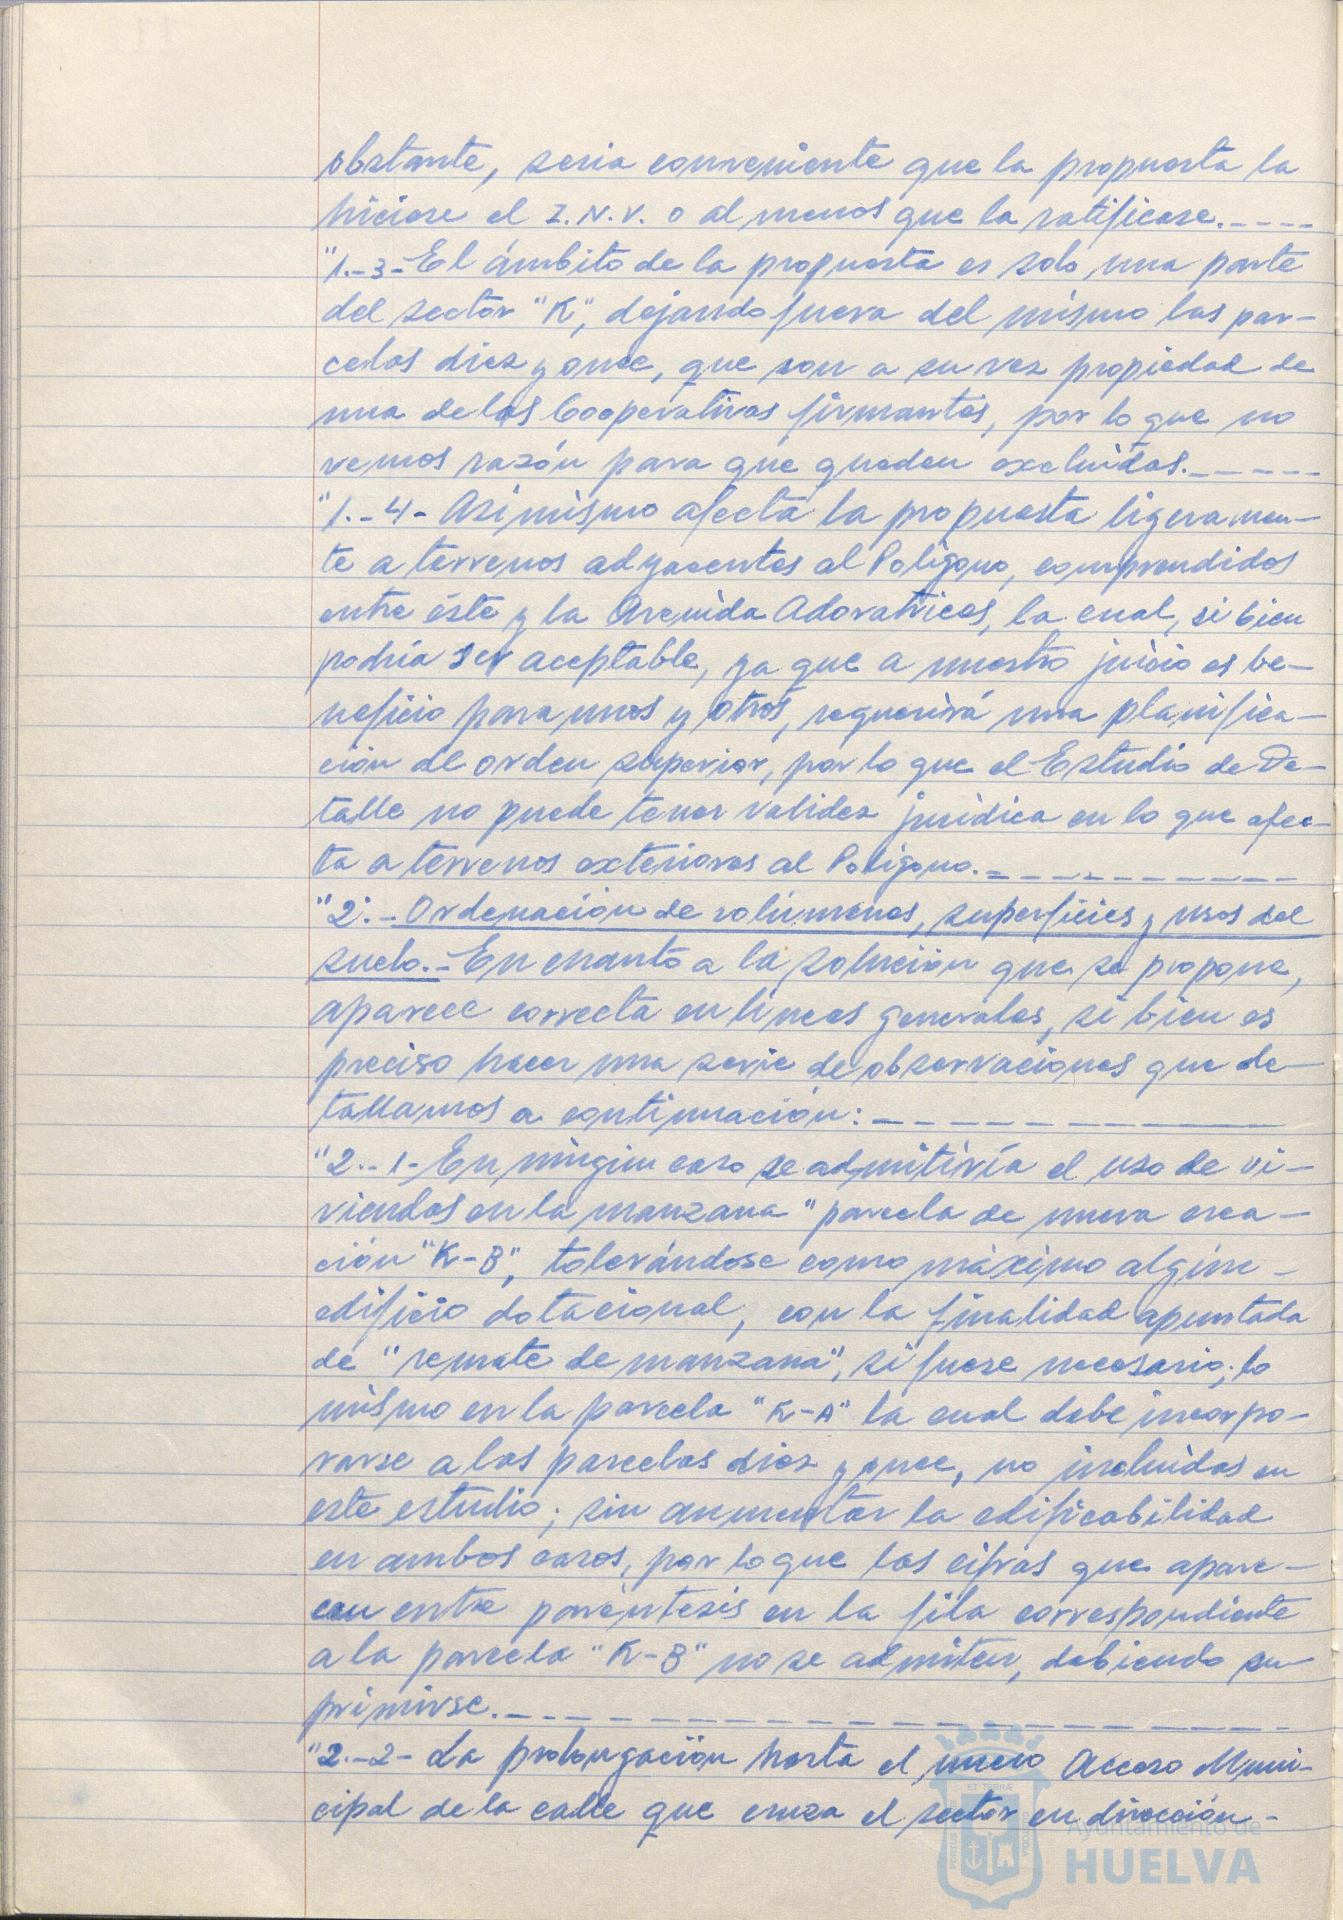 obstante, seria conveniente que la propuesta la
hiciese el I.N.V. o al menos que la ratificase.----
"1.-3-El ámbito de la propuesta es solo una parte
del sector "K", dejando fuera del mismo las par-
celas diez y once, que son a su vez propiedad de
una de las Cooperativas firmantes, por lo que no
vemos razón para que queden excluidas.-----
"1.-4- Asimismo afecta la propuesta ligeramen-
te a terrenos adyacentes al Polígono, comprendidos
entre éste y la Avenida Adoratrices, la cual, si bien
podría ser aceptable, ya que a nuestro juicio es be-
neficio para unos y otros, requerirá una planifica-
ción de orden superior, por lo que el Estudio de De-
talle no puede tener validez jurídica en lo que afec-
ta a terrenos exteriores al Polígono.----------
"2.- Ordenación de volúmenes, superficies y usos del
suelo.- En cuanto a la solución que se propone,
aparece correcta en líneas generales, si bien es
preciso hacer una serie de observaciones que de-
tallamos a continuación:----------
"2.-1-En ningún caso se admitiría el uso de vi-
viendas en la manzana "parcela de nueva crea-
ción "K-B", tolerándose como máximo algún-
edificio dotacional, con la finalidad apuntada
de "remate de manzana", si fuese necesario; lo
mismo en la parcela "K-A" la cual debe incorpo-
rarse a las parcelas diez y once, no incluidas en
este estudio; sin aumentar la edificabilidad
en ambos casos, por lo que las cifras que apare-
cen entre paréntesis en la fila correspondiente
a la parcela "K-B" no se admiten, debiendo su-
primirse.---------------
"2.-2- La prolongación hasta el nuevo Acceso Muni-
cipal de la calle que cruza el sector en dirección-
Ayuntamiento de
HUELVA